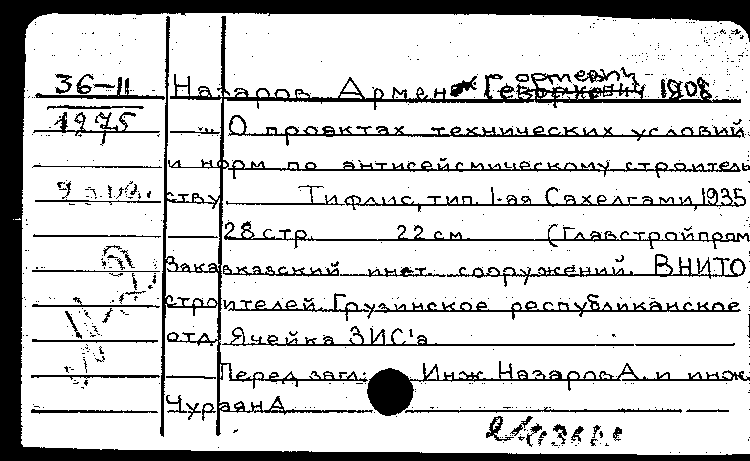 36-11 Назаров Армен Гортевич 1908
1975 ... О проектах технических условий
и норм по антисейсмическому строитель
ству. Тифлис, тип. 1-ая Сахелгами, 1935
28 стр. 22 см. (Главстройпром
Закавказский инст. сооружений. ВНИТО
строителей. Грузинское республиканское
отд. Ячейка ЗИС'а
Перед загл: Инж. Назаров А. и инж.
Чураян А